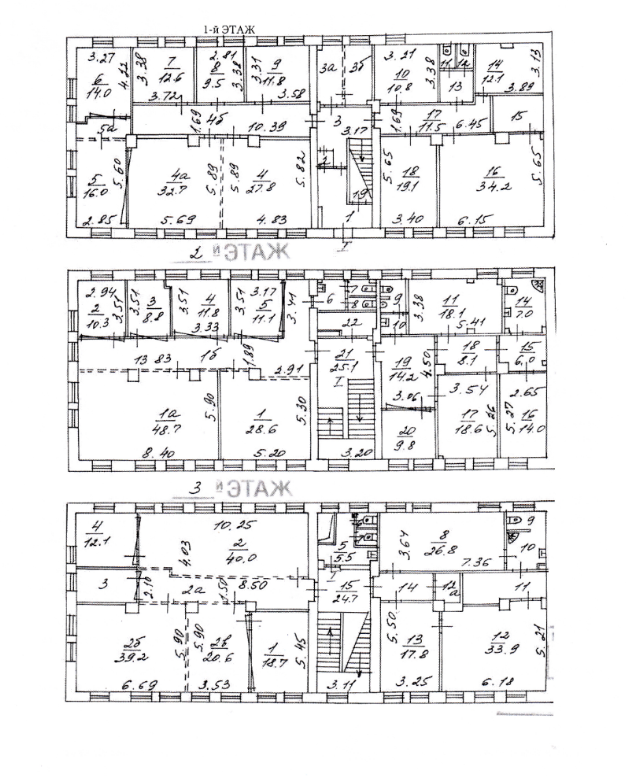 1-й ЭТАЖ
3.27 7 2.81 9 3а 3б 3.21 11 12 14
6 14.0 4.22 3.38 12.6 8 9.5 3.38 3.31 11.8 10 10.8 3.38 13 12.1 3.13
3.72 3.58 3.89
5а 1.69 4б 10.39 3 3.17 1.69 17 11.5 6.45 15
5 16.0 5.60 4а 32.7 5.89 5.89 4 27.8 5.82 2 5.65 18 19.1 16 34.2 5.65
19
2.85 5.69 4.83 1 3.40 6.15
I
2 й ЭТАЖ
2.94 3 4 3.17 6 7 9 11 14
2 10.3 3.51 3.51 8.8 3.51 11.8 3.51 5 11.1 3.41 8 3.38 18.1 7.0
3.33 22 10 5.41
13.83 1б 1.89 2.91 21 25.1 19 14.2 4.50 18 8.1 15 6.0
I 3.06 3.54 2.65
1а 48.7 5.90 1 28.6 5.30 17 18.6 5.26 5.27 16 14.0
20 9.8
8.40 5.20 3.20
3 й ЭТАЖ
4 12.1 10.25 8 26.8 9
4.03 2 40.0 5 5.5 3.64 7.36 10
3 2.10 2а 1.50 8.50 I 15 24.7 14 12а 11
2б 39.2 5.90 5.90 2в 20.6 1 18.7 5.45 5.50 13 17.8 12 33.9 5.21
6.69 3.53 3.11 3.25 6.18